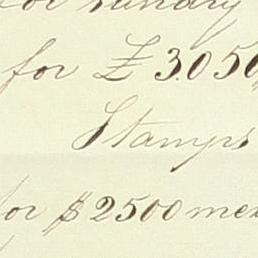 for sundry
for £ 3050
Stamps
for $ 2500 mex